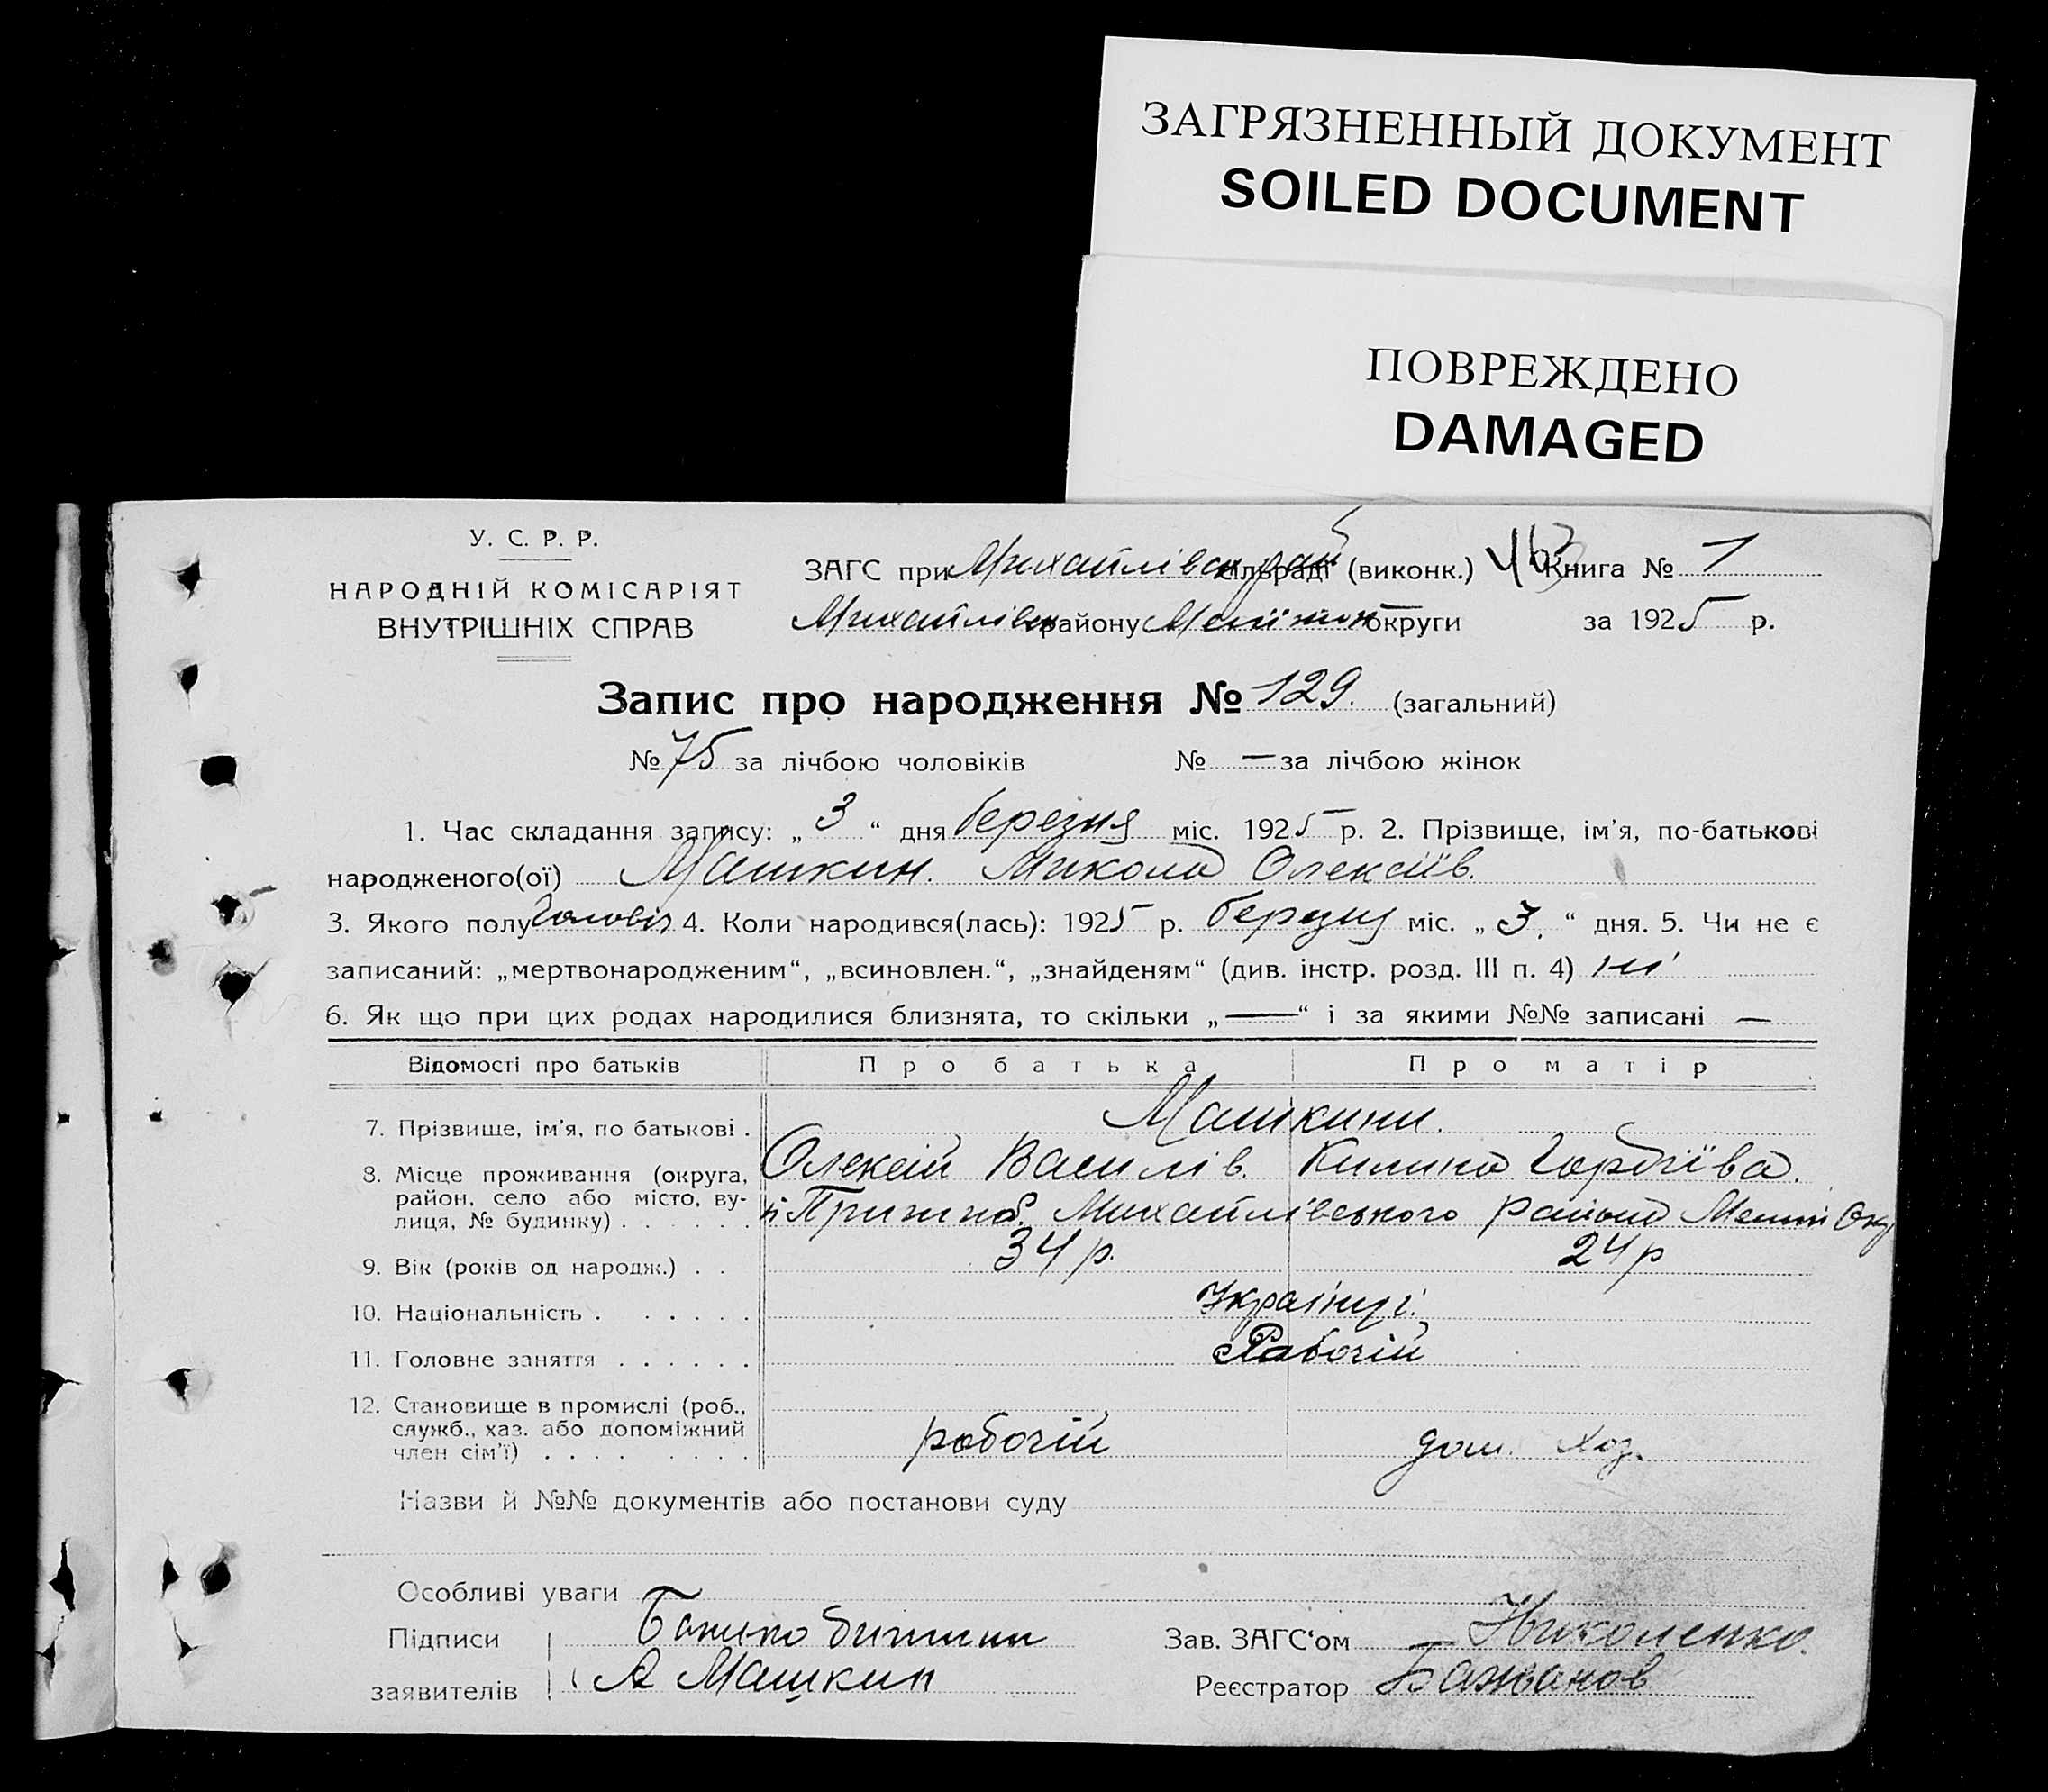 ЗАГРЯЗНЕННЫЙ ДОКУМЕНТ
SOILED DOCUMENT
ПОВРЕЖДЕНО
DAMAGED
У. С. Р. Р.
НАРОДНІЙ КОМІСАРІЯТ
ВНУТРІШНІХ СПРАВ
ЗАГС при Михайлівськ рай сільраді (виконк.) Книга № 1
Михайлівськ району округи за 1925 р.
Запис про народження № 129. (загальний)
№ 75 за лічбою чоловіків № — за лічбою жінок
1. Час складання запису: „ 3 “ дня березня міс. 1925 р. 2. Прізвище, ім'я, по-батькові
народженого(ої) Машкин. Микола Олексіїв.
3. Якого полу Чоловіч 4. Коли народився(лась): 1925 р. березня міс. „ 3. “ дня. 5. Чи не є
записаний: „мертвонародженим“, „всиновлен.“, „знайденям“ (див. інстр. розд. III п. 4) ні
6. Як що при цих родах народилися близнята, то скільки „—“ і за якими №№ записані —
Відомості про батьків Про батька Про матір
7. Прізвище, ім'я, по батькові . Машкини.
Олексій Василів. Килина Гордіїва.
8. Місце проживання (округа,
район, село або місто, ву-
лиця, № будинку) . . . . . . Михайлівського району Меліт Окр
9. Вік (років од народж.) . . 34 р. 24 р
10. Національність . . . . . . Українці.
11. Головне заняття . . . . . . Рабочій
12. Становище в промислі (роб.,
служб., хаз. або допоміжний
член сім'ї) . . . . . . . . рабочій дом. хоз.
Назви й №№ документів або постанови суду
Особливі уваги
Підписи
заявителів А Машкин
Зав. ЗАГС‘ом Николенко.
Реєстратор Бажанов